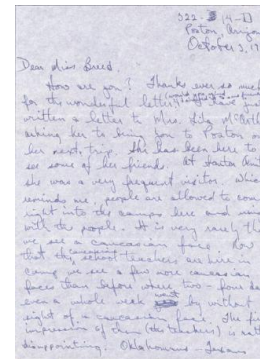 322-3-(4-D)
Poston, Arizona
October 2, 19
Dear Miss Breed,
How are you? Thanks ever so much
for the wonderful letter. I have just
written a letter to Mrs. Lily McCarth
asking her to bring you to Poston on
her next trip. She has been here to
see some of her friends. At Santa Anita
she was a very frequent visitor. Which
reminds me, people are allowed to come
right into the camps here and
with the people. It is very rarely that
we see a caucasian face. Now
that the caucasian school teachers are here in
camp we see a few more caucasian
faces than before where two - four days
even a whole week went by without
sight of a caucasian face. The first
impression of them (the teachers) is rather
disappointing. Oklahomans - Texans